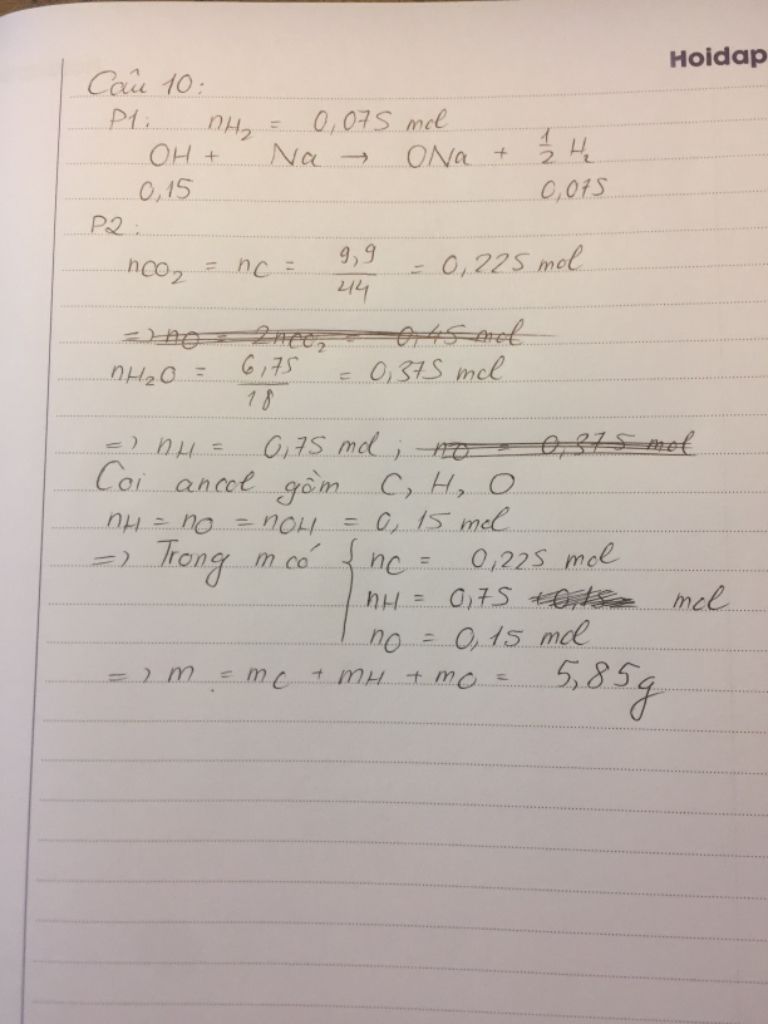 Hoidap
Câu 10:
P1: nH₂ = 0,075 mol
OH + Na → ONa + 1/2 H₂
0,15 0,075
P2:
nCO₂ = nC = 9,9/44 = 0,225 mol
=> nO = 2nCO₂ = 0,45 mol
nH₂O = 6,75/18 = 0,375 mol
=> nH = 0,75 mol ; nO = 0,375 mol
Coi ancol gồm C, H, O
nH = nO = nOH = 0,15 mol
=> Trong m có { nC = 0,225 mol
nH = 0,75 mol
nO = 0,15 mol
=> m = mC + mH + mO = 5,85g